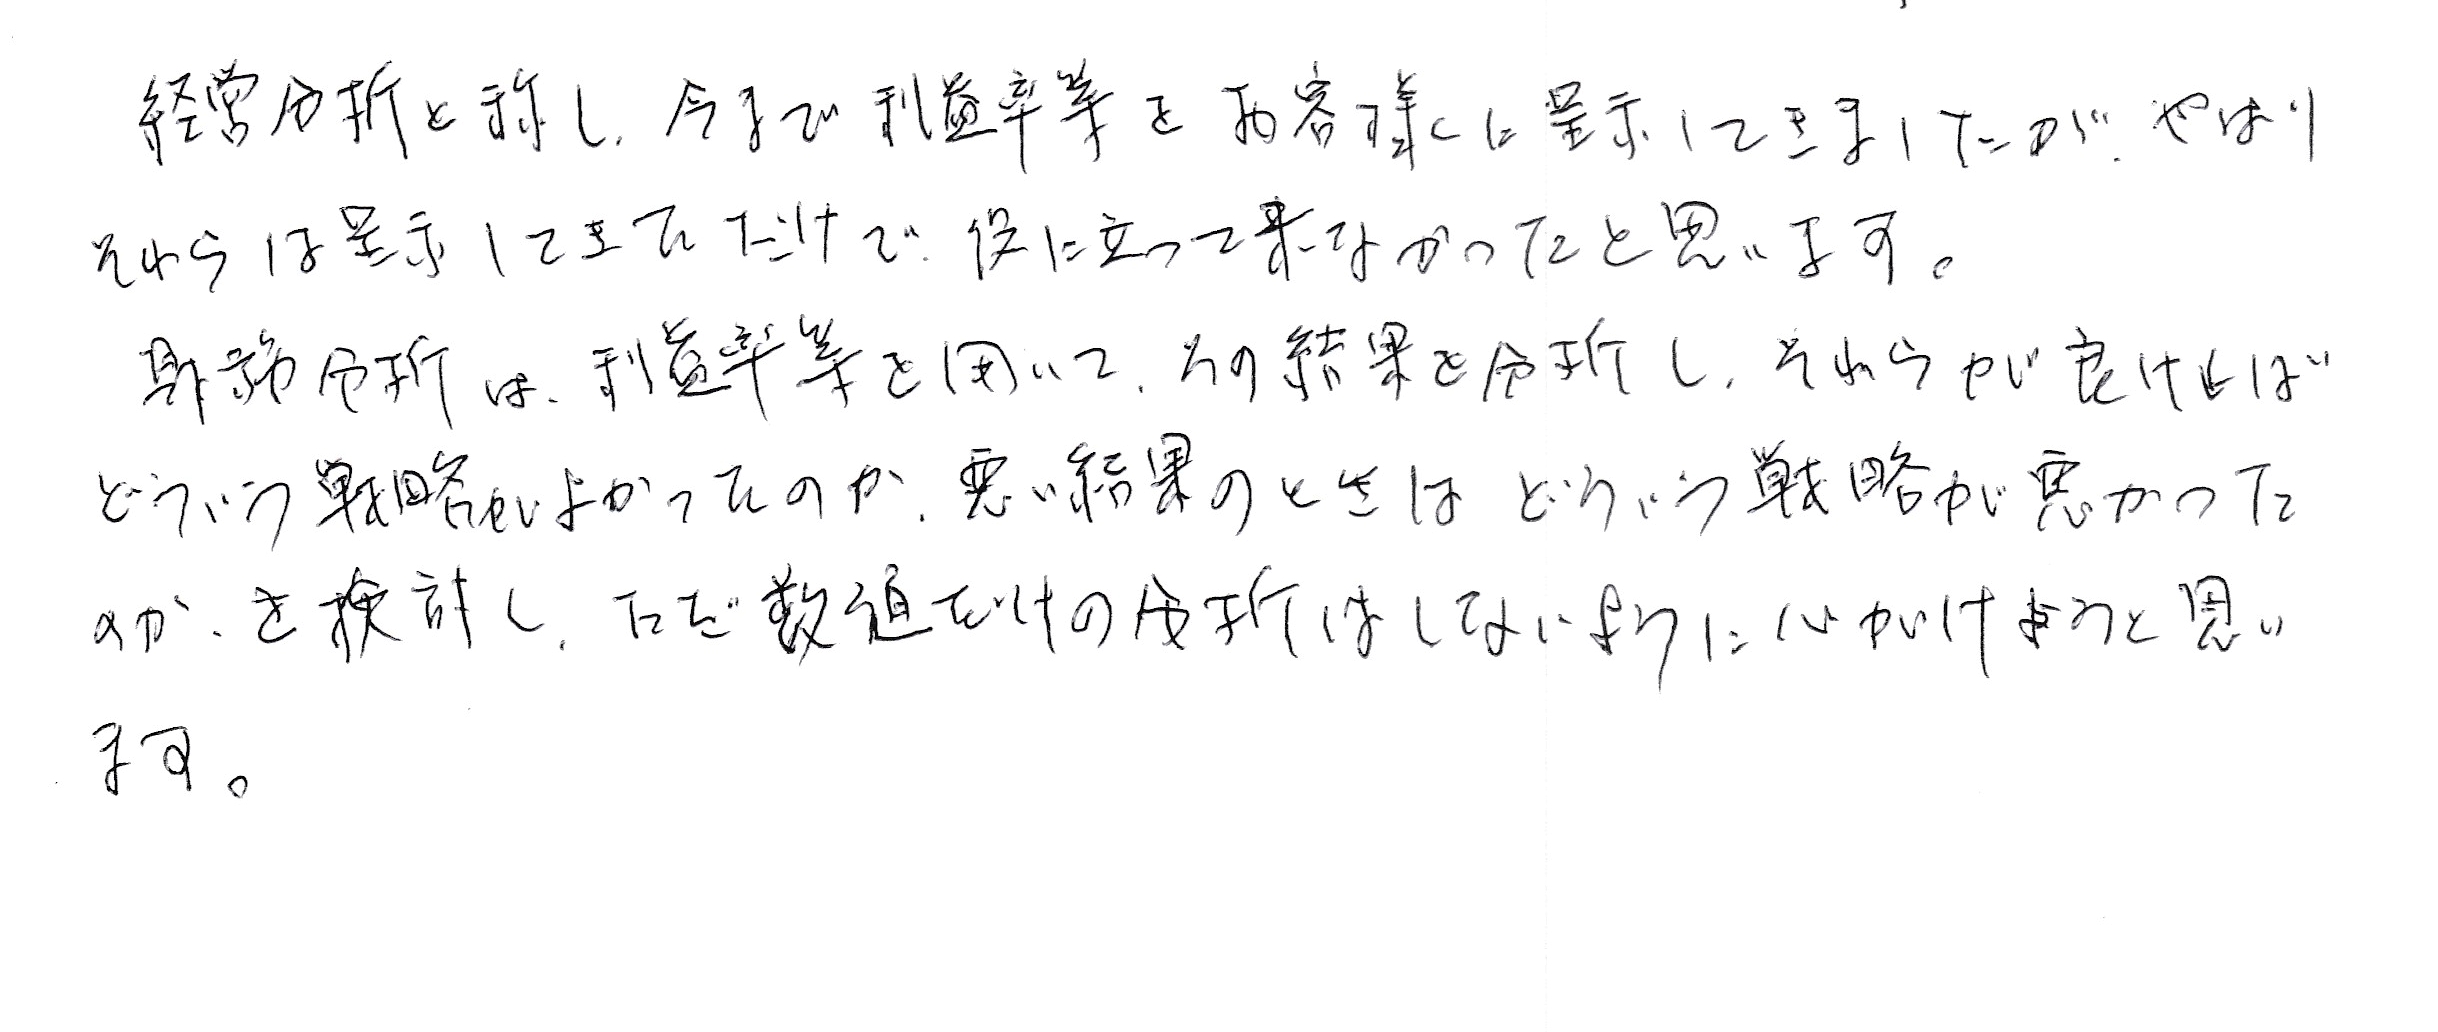 経営分析と称し、今まで利益率等をお客様に呈示してきましたが、やはり
それらは呈示してきただけで、役に立って来なかったと思います。
財務分析は、利益率等を用いて、その結果を分析し、それらが良ければ
どういう戦略がよかったのか、悪い結果のときはどういう戦略が悪かった
のか、を検討し、ただ数値だけの分析はしないように心がけようと思い
ます。